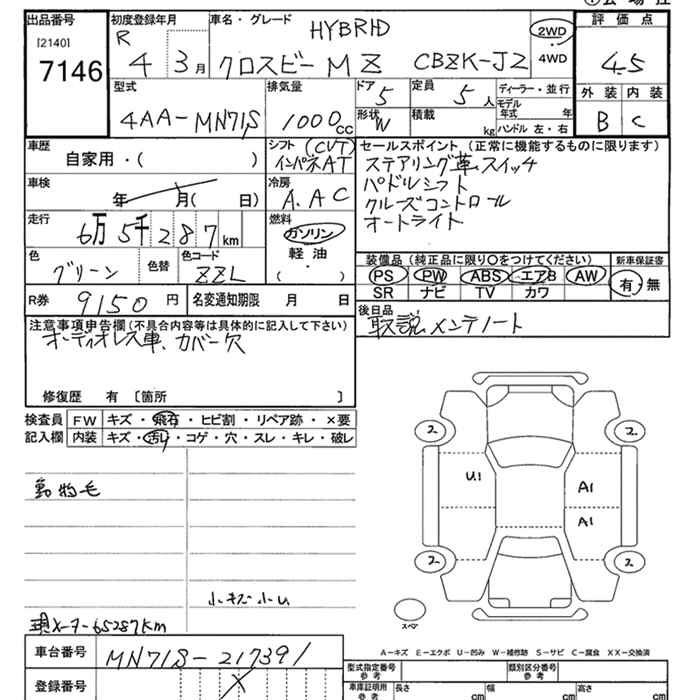 出品番号 初度登録年月 車名・グレード 評価点
[2140] R HYBRID 2WD
7146 4 3月 クロスビー MZ CBZK-J2 4WD 4.5
型式 排気量 ドア 5 定員 5人 ディーラー・並行 外装 内装
4AA-MN71S 1000cc 形状 W 積載 kg モデル年式 年 B C
ハンドル 左・右
車歴 シフト (CVT) セールスポイント (正常に機能するものに限ります)
自家用・( ) インパネAT ステアリング革、スイッチ
車検 冷房 パドルシフト
年 月( 日) A.AC クルーズコントロール
走行 燃料 オートライト
6万5千287km ガソリン
色 色替 色コード 軽油 装備品 (純正品に限り○をつけてください) 新車保証書
グリーン ZZL ( ) PS PW ABS エアB AW 有・無
SR ナビ TV カワ
R券 9150円 名変通知期限 月 日 後日品
注意事項申告欄(不具合内容等は具体的に記入して下さい) 取説 メンテノート
オーディオレス車、カバー欠
修復歴 有 〔箇所 〕
検査員 FW キズ・飛石・ヒビ割・リペア跡・×要
記入欄 内装 キズ・汚れ・コゲ・穴・スレ・キレ・破レ
2 2
動物毛 U1 A1
A1
2 2
小キズ小U
スペア
現メーター65287km
A-キズ E-エクボ U-凹み W-補修跡 S-サビ C-腐食 XX-交換済
車台番号 MN71S-217391
登録番号 型式指定番号 参考 類別区分番号 参考
車庫証明用 参考 長さ cm 幅 cm 高さ cm